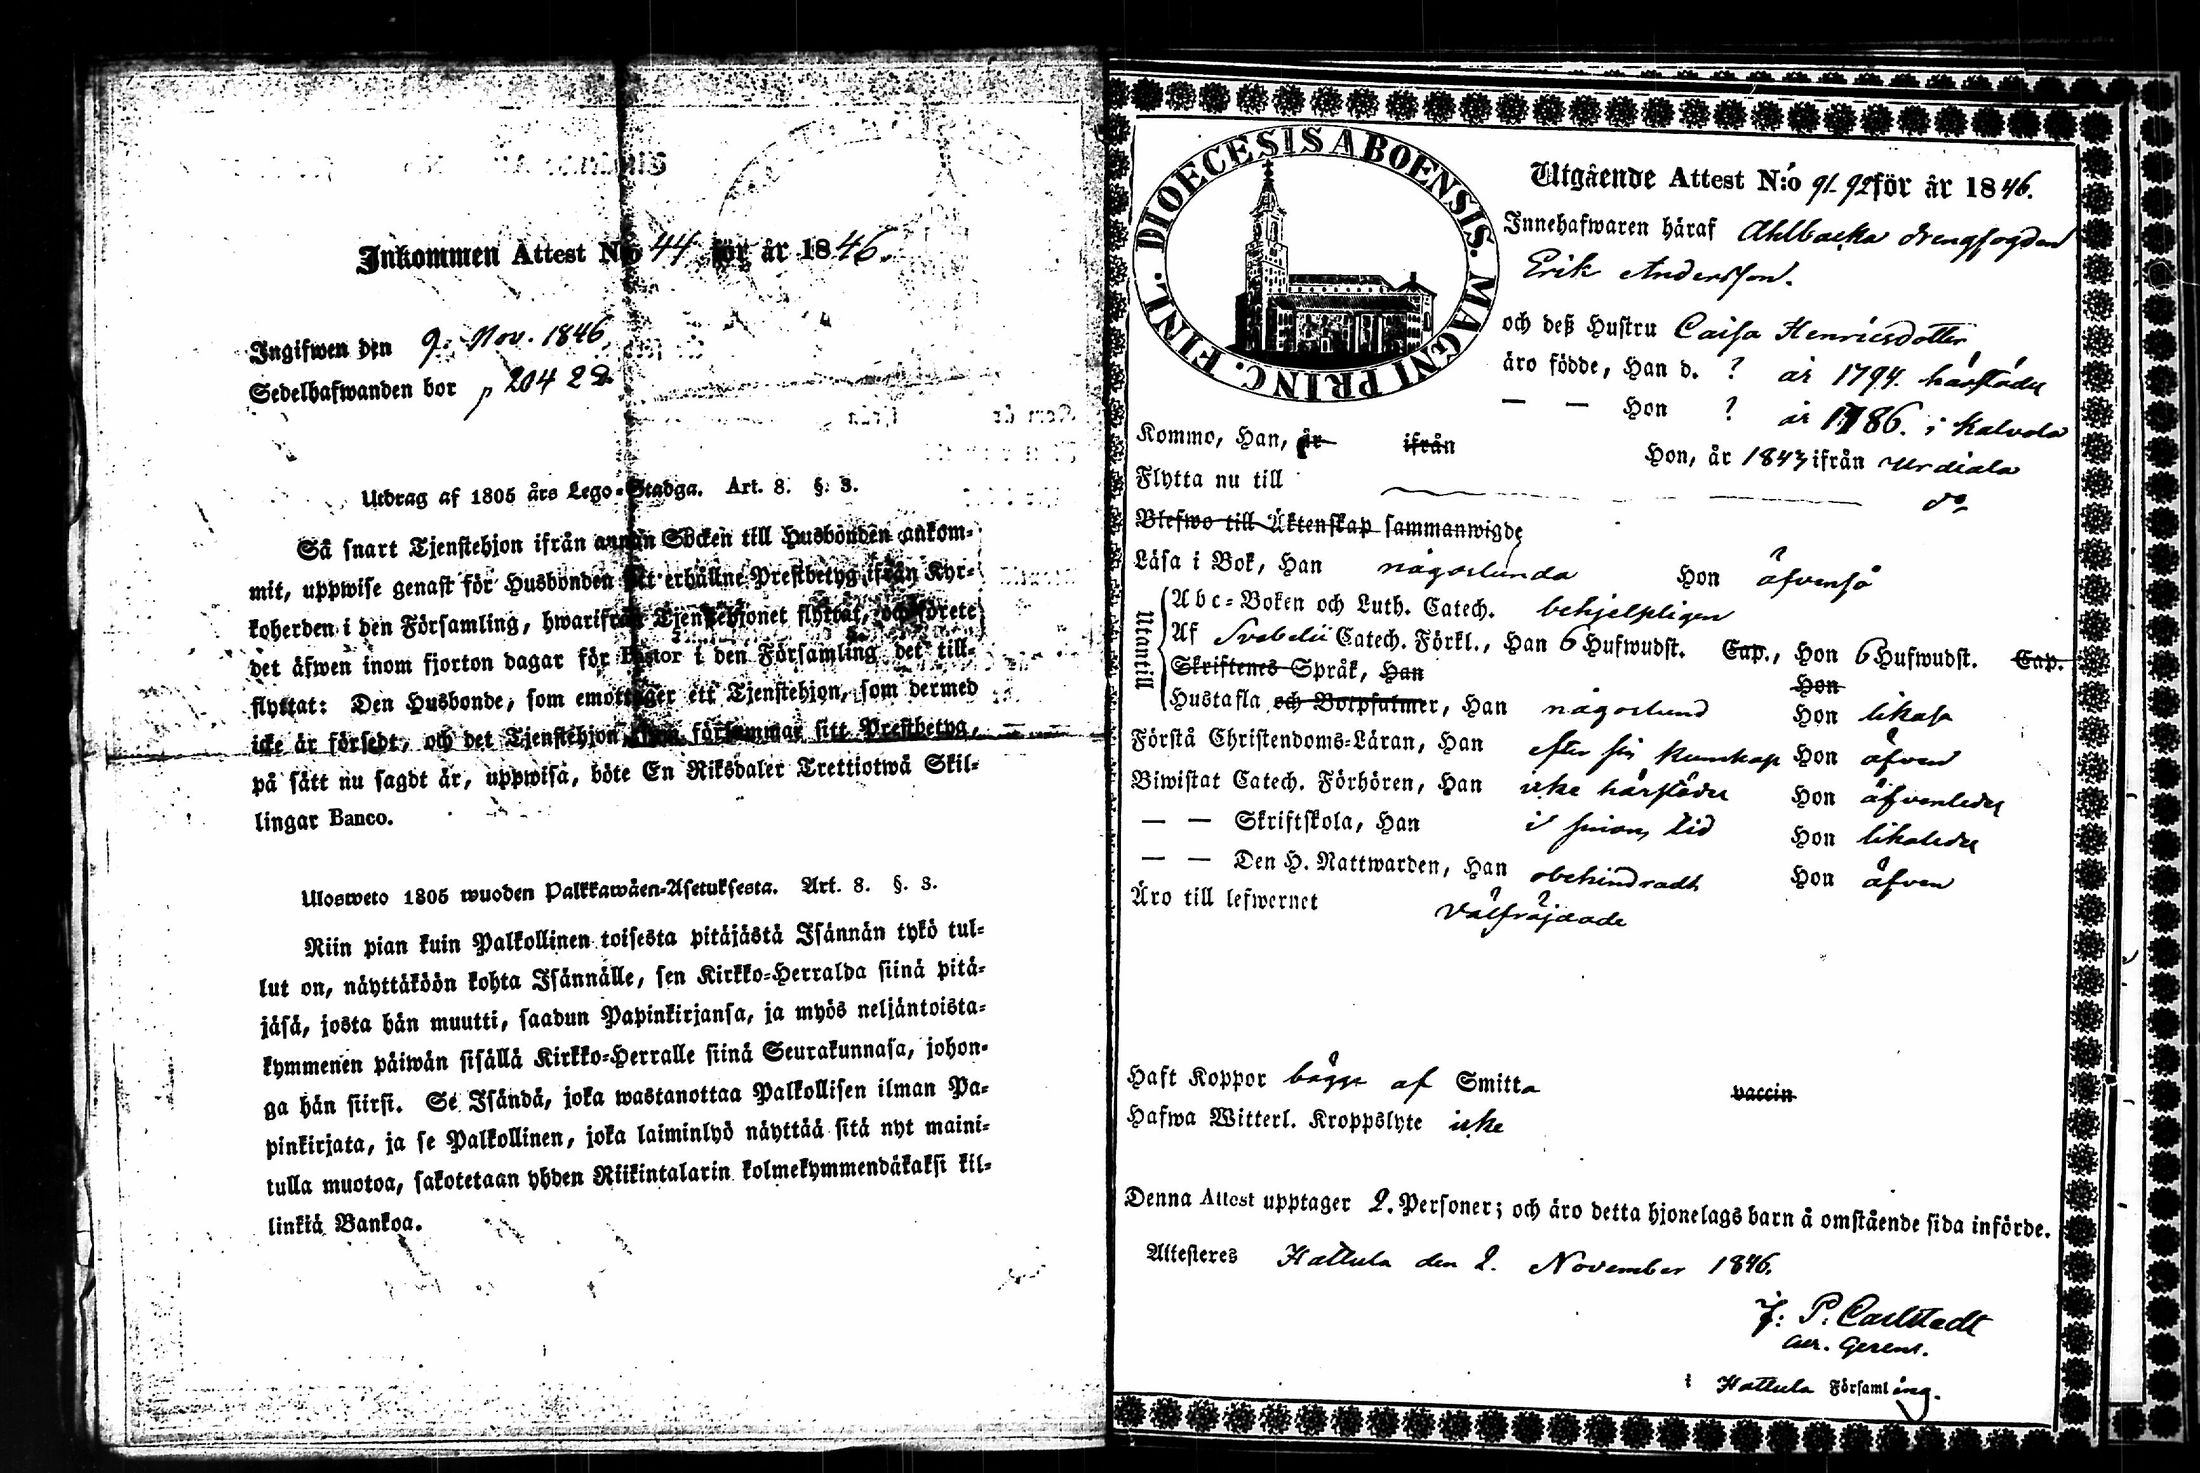 Inkommen Attest N:o 44 för år 1846.
Ingifwen den 9. Nov. 1846.
Sedelhafwanden bor p 204
Utdrag af 1805 års Lego-Stadga. Art. 8. §. 3.
Så snart Tjenstehjon ifrån annan Socken till Husbonden ankom-
mit, uppwise genast för Husbonden ett erhållne Prestbetyg ifrån Kyr-
koherden i den Församling, hwarifrån Tjenstehjonet flyttat, och förete
det äfwen inom fjorton dagar för Pastor i den Församling det till-
flyttat: Den Husbonde, som emottager ett Tjenstehjon, som dermed
icke är försedt, och det Tjenstehjon som försummar sitt Prestbetyg,
på sätt nu sagdt är, uppwisa, böte En Riksdaler Trettiotwå Skil-
lingar Banco.
Ulosweto 1805 wuoden Palkkawäen-Asetuksesta. Art. 8. §. 3.
Niin pian kuin Palkollinen toisesta pitäjästä Isännän tykö tul-
lut on, näyttäköön kohta Isännälle, sen Kirkko-Herralda siinä pitä-
jäsä, josta hän muutti, saadun Papinkirjansa, ja myös neljäntoista-
kymmenen päiwän sisällä Kirkko-Herralle siinä Seurakunnasa, johon-
ga hän siirsi. Se Isändä, joka wastanottaa Palkollisen ilman Pa-
pinkirjata, ja se Palkollinen, joka laiminlyö näyttää sitä nyt maini-
tulla muotoa, sakotetaan yhden Riikintalarin kolmekymmendäkaksi kil-
linkiä Bankoa.
DIOECESIS ABOENSIS. MAGNI PRINC. FINL.
Utgående Attest N:o 91. 92 för år 1846.
Innehafwaren häraf Ahlbacka drengfogden
Erik Andersson.
och deß Hustru Caisa Henricsdotter
äro födde, Han d. ? år 1794. härstädes
— — Hon ? år 1786. i Kalvola
Kommo, Han, år ifrån Hon, år 1843 ifrån Urdiala
Flytta nu till do
Blefwo till Äktenskap sammanwigde
Läsa i Bok, Han någorlunda Hon äfvenså
Utantill
Abc-Boken och Luth. Catech. behjelpligen
Af Svebelii Catech. Förkl., Han 6 Hufwudst. Cap., Hon 6 Hufwudst. Cap.
Skriftenes Språk, Han Hon
Hustafla och Botpsalmer, Han någorlund Hon likaså
Förstå Christendoms-Läran, Han efter sin kunskap Hon äfven
Biwistat Catech. Förhören, Han icke härstädes Hon äfvenledes
— — Skriftskola, Han i sinom tid Hon likaledes
— — Den H. Nattwarden, Han obehindradt Hon äfven
Äro till lefwernet välfräjdade
Haft Koppor bägge af Smitta vaccin
Hafwa Witterl. Kroppslyte icke
Denna Attest upptager 2. Personer; och äro detta hjonelags barn å omstående sida införde.
Attesteres Hattula den 2. November 1846.
J: P: Carlstedt
i Hattula Församling.